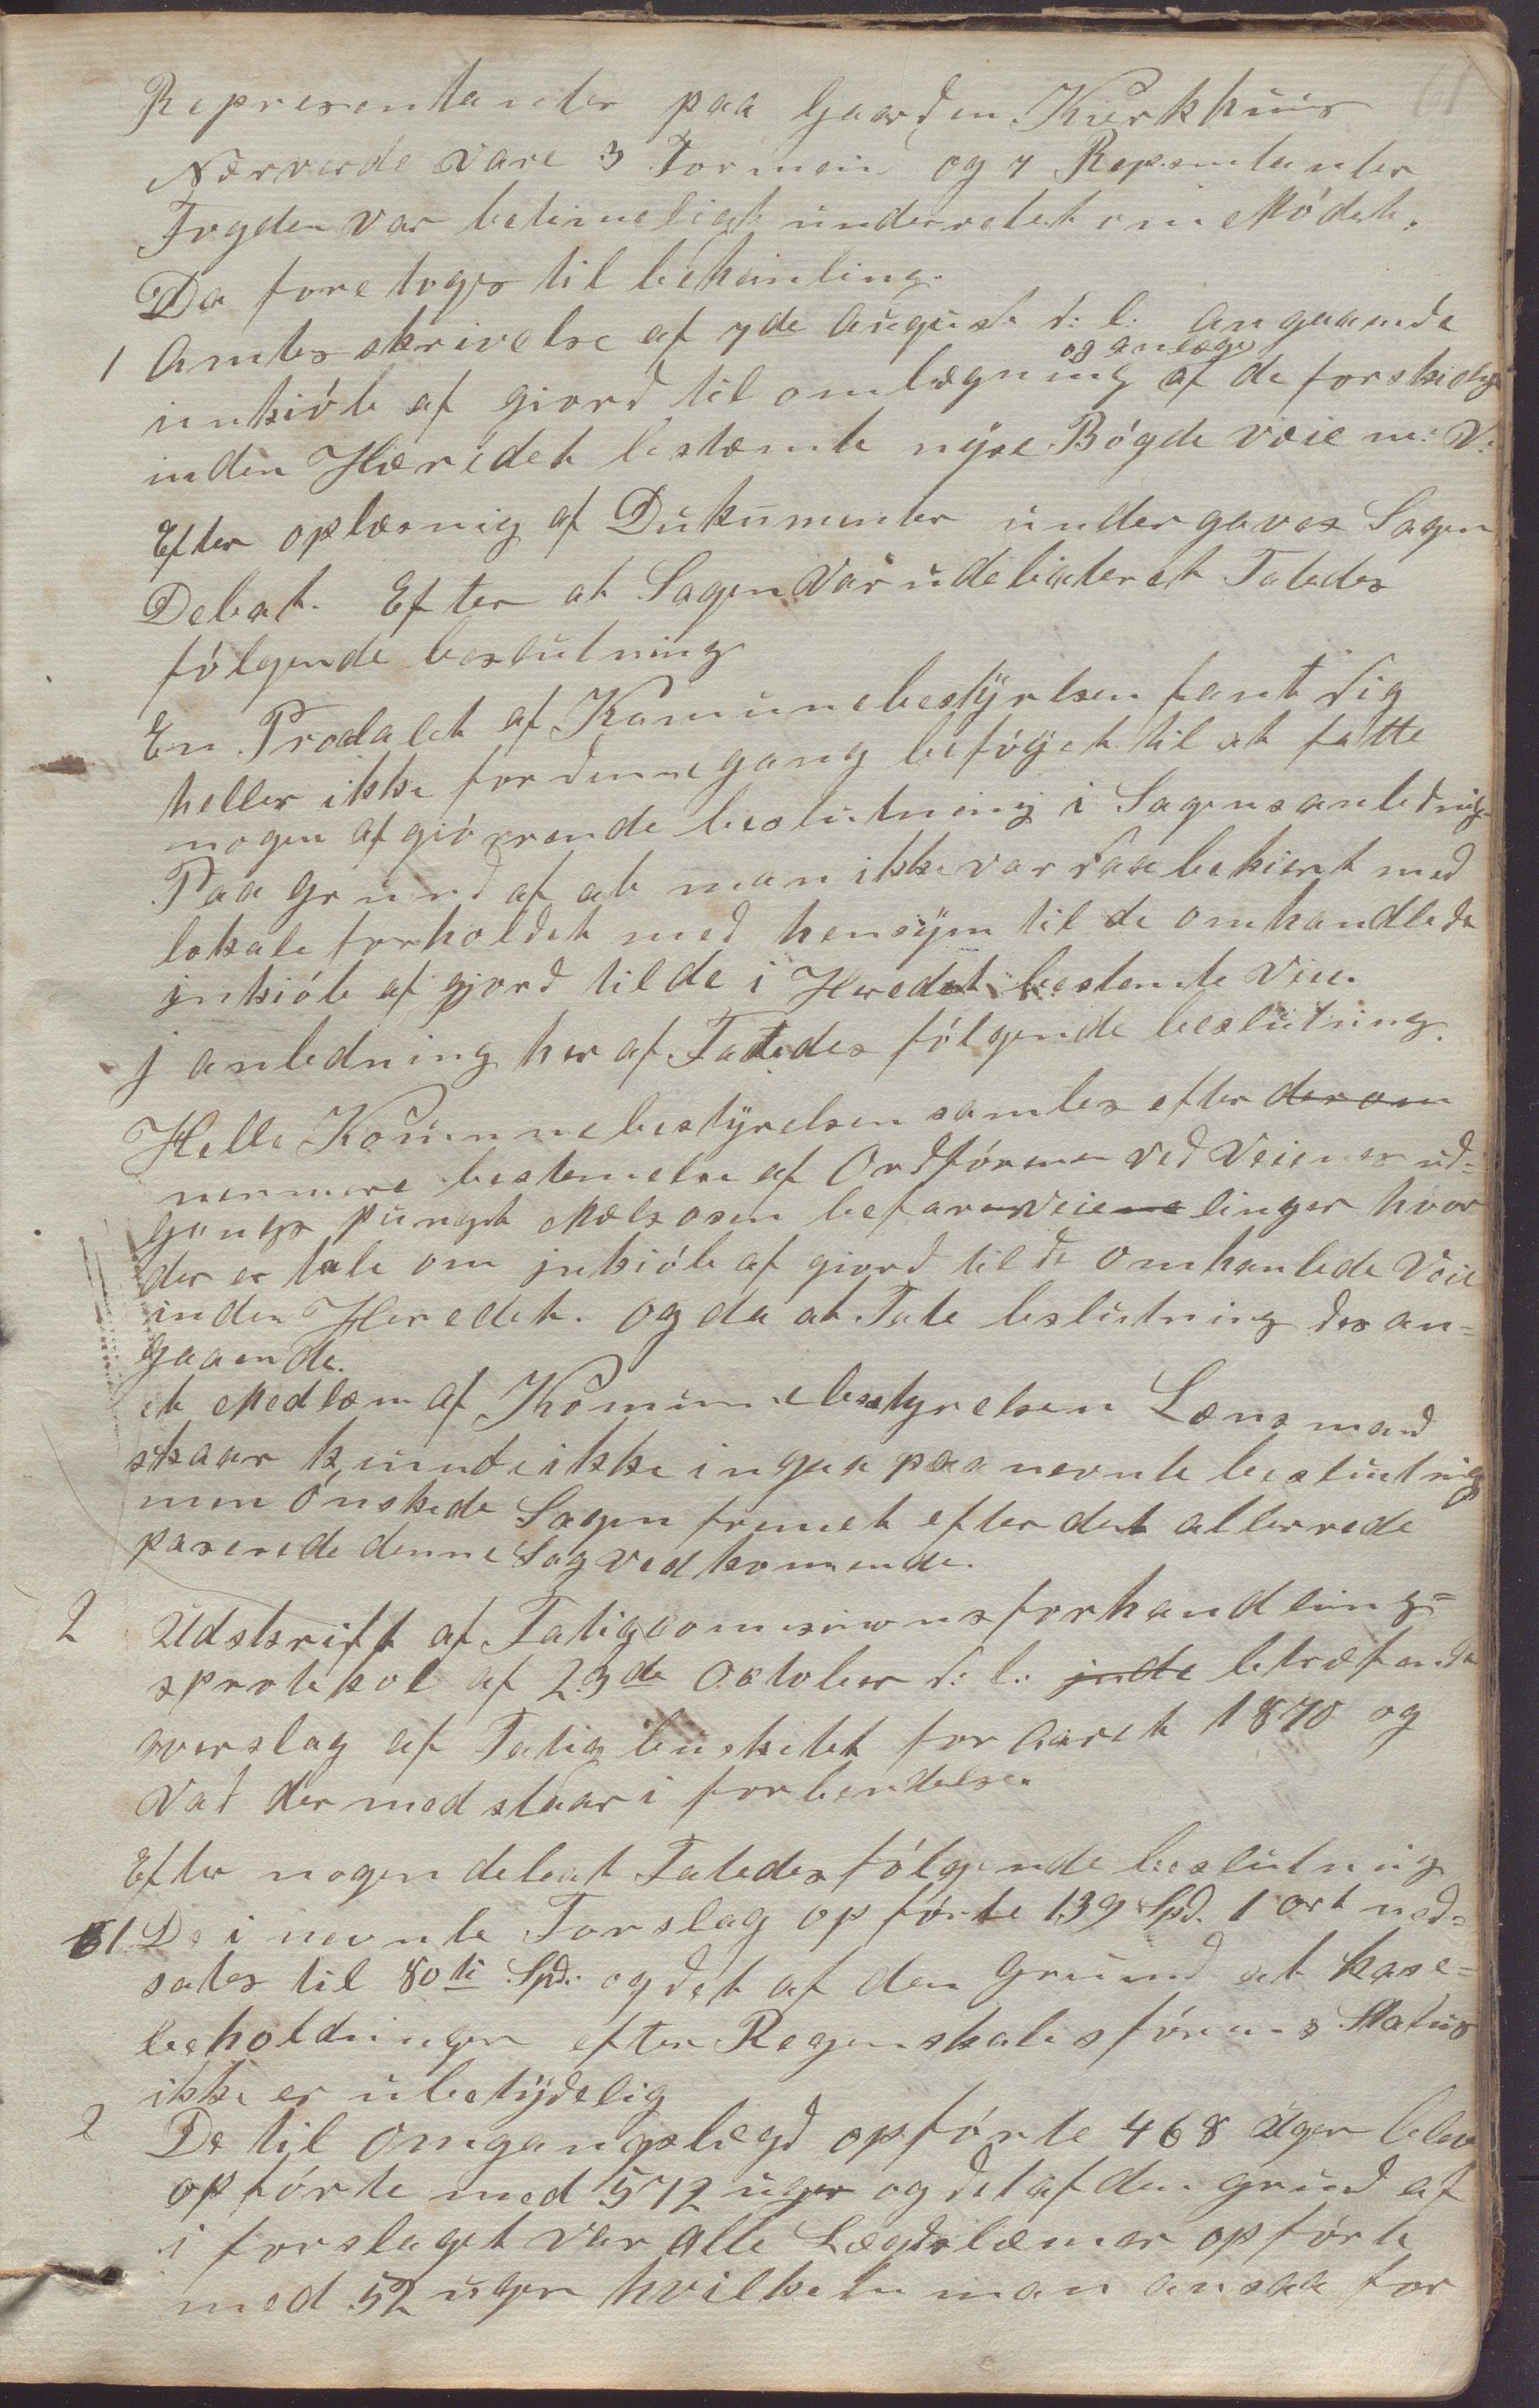 Representanter paa Gaarden Kierkhuus
Nærverde vare 3 Formein og 7 Repsentanter
Fogden var betimeligt underretet om Mödet.
Da foretoges til behanling.
1 Amtes skrivelse af 7de August d: l: angaaende
og anlæg
inkiöb af giord til omlægning af de forskielig
inden Hæredet bestæmte nÿe Bögde veie m: V:
Efter oplæsnig af Dukumenter undergaves Sagen
Debat. Efter at Sagen var udebateret Fatedes
fölgende beslutning
En Prodalet af Komunebestÿrelsen fant sig
heller ikke for denne gang beföÿet til at fatte
nogen afgiörrende beslutning i Sagensanledning
Paa grund af at man ikke var saa bekient med
lokale forholdet med hensÿn til de omhandlede
jnkiöb af gjord til de i Heredet bestemte Veie.
j anledning her af Fatedes fölgende beslutning.
Hele Komunebestÿrelsen samles efter derom
nermere bestemelse af Ordföreren ved Veienes ud=
gangs pungt Mælsosen befare veie linger hvor
der er tale om jnkiöb af giord til de omhanlede Veie
inden Heredet. og da at Fate beslutning des an=
gaaende.
et Medlæm af Komunebestyrelsen Lænsmand
skaar kunde ikke ingaa paa nevnte beslutnig
men önskede Sagen fremet efter det allerrede
paserede denne Sag vedkomende.
2 Udskrift af Fatigcomisionsforhandling=
sprotekol af 23de Oktober d: l: jnde betræfende
overslag af Fatig buskitet for Aaret 1870 og
Vad der med staar i forbendelse.
Efter nogen debat Fatedes fölgende beslutnig
1 De i nevnte Forslag opförte 139 Spd. 1 ort ned=
sates til 80ti Spd. og det af den Grund at kase=
beholdningen efter Regenskabsförerens Status
ikke er ubetÿdelig
2 De til omgangslægd opförte 468 uger blev
opförte med 572 uger og det af den grund af
i forslaget var alle Lægdslæmer opförte
med 52 uger hvilket man ansaa for